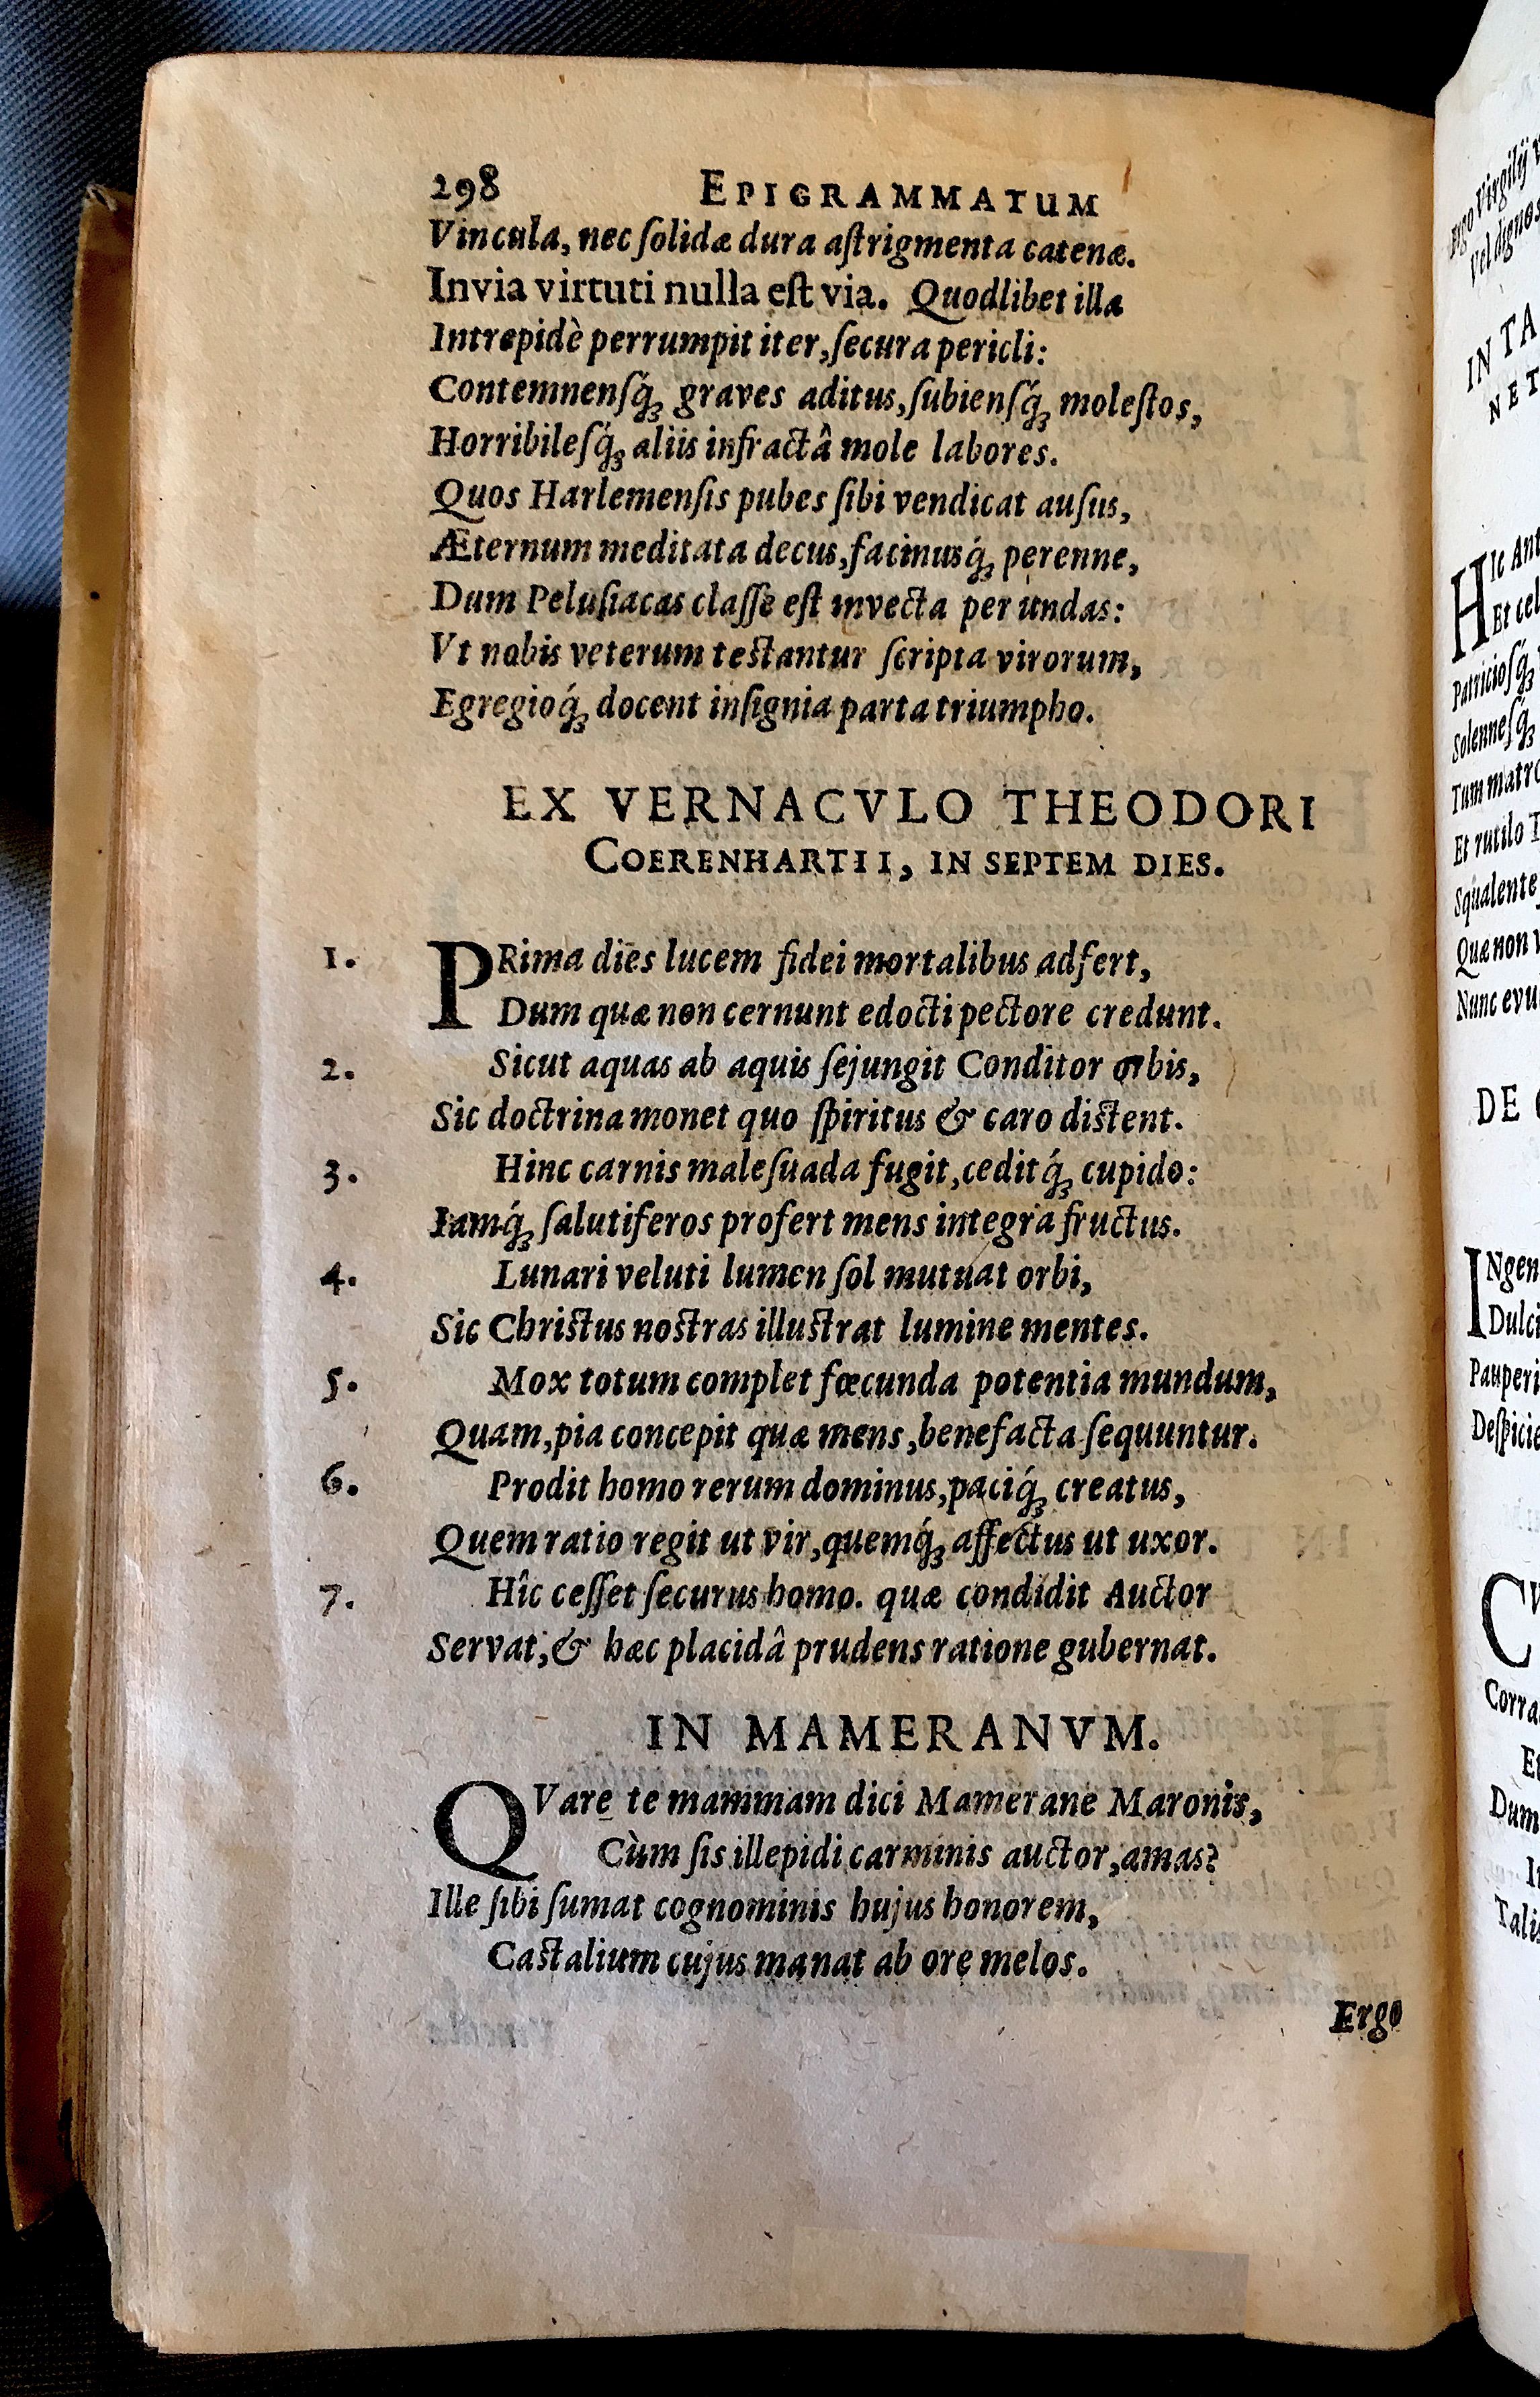 298 EPIGRAMMATUM
Vincula, nec ſolidæ dura aſtrigmenta catenæ.
Invia virtuti nulla eſt via. Quodlibet illa
Intrepidè perrumpit iter, ſecura pericli:
Contemnenſq́ꝫ graves aditus, ſubienſq́ꝫ moleſtos,
Horribileſq́ꝫ aliis infractâ mole labores.
Quos Harlemenſis pubes ſibi vendicat auſus,
Æternum meditata decus, facinusq́ꝫ perenne,
Dum Peluſiacas claſſe eſt invecta per undas:
Vt nobis veterum teſtantur ſcripta virorum,
Egregioq́ꝫ docent inſignia parta triumpho.
EX VERNACVLO THEODORI
COERENHARTII, IN SEPTEM DIES.
1. PRima dies lucem fidei mortalibus adfert,
Dum quæ non cernunt edocti pectore credunt.
2. Sicut aquas ab aquis ſejungit Conditor orbis,
Sic doctrina monet quo ſpiritus & caro diſtent.
3. Hinc carnis maleſuada fugit, ceditq́ꝫ cupido:
Iamq́ꝫ ſalutiferos profert mens integra fructus.
4. Lunari veluti lumen ſol mutuat orbi,
Sic Chriſtus noſtras illuſtrat lumine mentes.
5. Mox totum complet fœcunda potentia mundum,
Quam, pia concepit quæ mens, benefacta ſequuntur.
6. Prodit homo rerum dominus, paciq́ꝫ creatus,
Quem ratio regit ut vir, quemq́ꝫ affectus ut uxor.
7. Hîc ceſſet ſecurus homo. quæ condidit Auctor
Servat, & hæc placidâ prudens ratione gubernat.
IN MAMERANVM.
QVare te mammam dici Mamerane Maronis,
Cùm ſis illepidi carminis auctor, amas?
Ille ſibi ſumat cognominis hujus honorem,
Caſtalium cujus manat ab ore melos.
Ergo
Ergo Virgilij
Vel
IN TA
NET
HIc Ant
Et cel
Patricioſq́ꝫ
Solenneſq́ꝫ
Tum matro
Et rutilo
Squalente
Quæ non
Nunc evu
DE
INgen
Dulci
Pauperi
Deſpicie
CV
Corra
Et
Dum
Talis